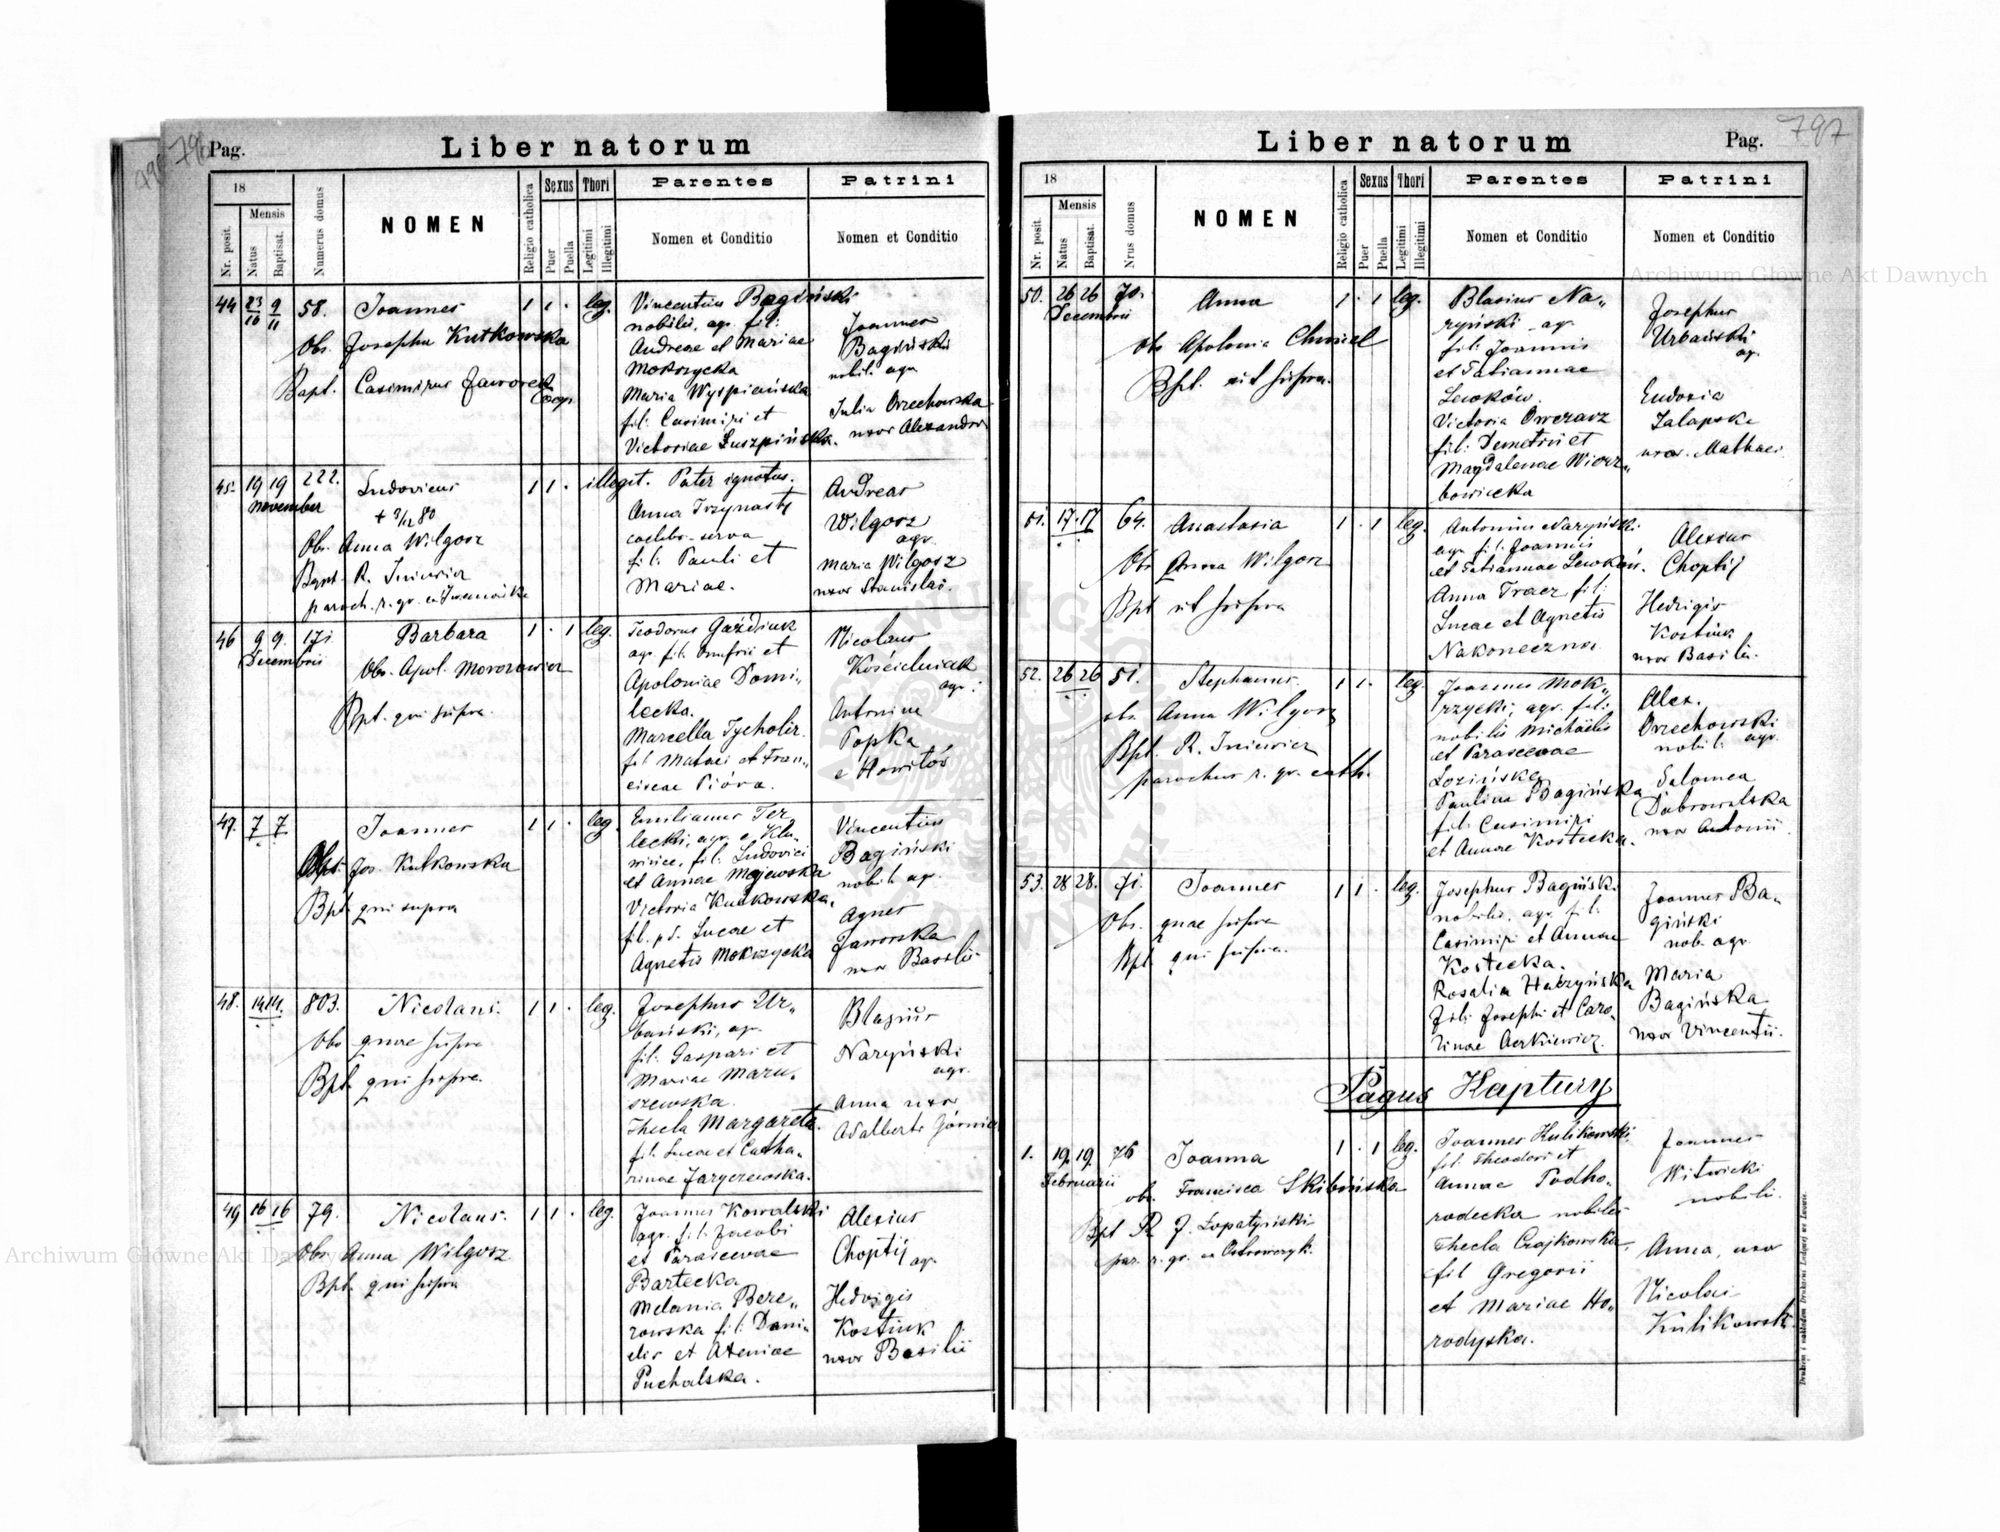 796
Pag.
Liber natorum
18
Nr. posit.
Mensis
Natus
Baptisat.
Numerus domus
NOMEN
Religio catholica
Sexus
Puer
Puella
Thori
Legitimi
Illegitimi
Parentes
Nomen et Conditio
Patrini
Nomen et Conditio
44 23/10 9/11 58. Joannes 1 1 · leg.
Obs. Josepha Kutkowska
Bapt. Casimirus Jaworek
Coop.
Vincentius Bagiński
nobilis, agr. fil:
Andreae et Mariae
Mokrzycka
Maria Wyspiańska
fil: Casimiri et
Victoriae Luszpińska.
Joannes
Bagiński
nobil: agr.
Julia Orzechowska
uxor Alexandri
45. 19 19 222. Ludovicus 1 1 · illegit.
November
+ 3/12 80
Obs. Anna Wilgosz
Bapt. R. Iniewicz
paroch. r. gr.
Pater ignotus.
Anna Trzynasty
caelebs-serva
fil: Pauli et
Mariae.
Andreas
Wilgosz
agr.
Maria Wilgosz
uxor Stanislai.
46 9 9. 171. Barbara 1 · 1 leg.
Decembris
Obs. Apol. Morozowicz
Bpt. qui supra.
Teodorus Gaździuk
agr. fil. Onufrii et
Apoloniae Domi-
lecka.
Marcella Tycholiz
fil Mathei et Fran„
ciscae Pióra.
Nicolaus
Kościelniak
agr:
Antonina
Popka
e Howiłów
47. 7 7. Joannes 1 1 · leg.
Obst. Jos. Kutkowska
Bpt. qui supra
Emilianus Ter
lecki, agr. e Klu„
wince, fil: Ludovici
et Annae Majewska
Victoria Kutkowska,
fil. pd. Lucae et
Agnetis Mokrzycka
Vincentius
Bagiński
nobil: agr.
Agnes
Jaworska
uxor Basilii
48. 14 14. 803. Nicolaus. 1 1 · leg.
Obs quae supra
Bpt. qui supra.
Josephus Ur„
bański, agr.
fil: Gaspari et
Mariae Maru„
szewska.
Thecla Margareta.
fil: Lucae et Catha„
rinae Jargczewska.
Blasius
Naryński
agr.
Anna uxor
Adalberti Górnic
49 16 16 79. Nicolaus. 1 1 · leg.
Obs. Anna Wilgosz
Bpt. qui supra
Joannes Kowalski
agr. fil: Jacobi
et Parascevae
Bartecka
Melania Bere„
zowska fil: Dani-
elis et Ateniae
Puchalska.
Alexius
Choptij agr.
Hedvigis
Kostiuk
uxor Basilii
797
Liber natorum
Pag.
18
Nr. posit.
Mensis
Natus
Baptisat.
Nrus domus
NOMEN
Religio catholica
Sexus
Puer
Puella
Thori
Legitimi
Illegitimi
Parentes
Nomen et Conditio
Patrini
Nomen et Conditio
50. 26 26 70. Anna 1 · 1 leg.
Decembris
Obs Apolonia Chmiel
Bpt. ut supra.
Blasius Na„
ryński agr.
fil: Joannis
et Tatiannae
Lewków.
Victoria Owczarz
fil: Demetrii et
Magdalenae Wierz„
bowiecka
Josephus
Urbański
agr.
Eudoxia
Zalapska
uxor. Mathaei.
51. 17. 17 64. Anastasia 1 · 1 leg.
Obs Anna Wilgosz
Bpt ut supra
Antonius Naryński.
agr. fil: Joannis
et Tatiannae Lewków.
Anna Tracz fil:
Lucae et Agnetis
Nakoneczna.
Alexius
Choptij
Hedvigis
Kostiuk
uxor Basilii.
52. 26 26 51. Stephanus. 1 1 · leg.
obs. Anna Wilgosz
Bpt. R. Iniewicz
parochus r. gr. cath.
Joannes Mok„
rzycki, agr. fil:
nobilis Michaelis
et Parascevae
Lozińska
Paulina Bagińska
fil: Casimiri
et Annae Kostecka.
Alex.
Orzechowski
nobil: agr.
Salomea
Dabrowolska
uxor Antonii.
53. 28 28. 71. Joannes 1 1 · leg.
Obs. quae supra
Bpt. qui supra.
Josephus Bagiński
nobilis, agr. fil:
Casimiri et Annae
Kostecka.
Rosalia Habzyńska
fil: Josephi et Caro„
linae Aerkiewicz.
Joannes Ba„
giński
nob. agr.
Maria
Bagińska
uxor Vincentii.
Pagus Kaptury
1. 19. 19. 76 Joanna 1 · 1 leg.
Februarii
obs. Francisca Skibińska
Bpt R. J. Lopatyński
par. r. gr. ex Ostrowczyk.
Joannes Kulikowski,
fil: Theodori et
Annae Podho„
rodecka nobiles
Thecla Czajkowska,
fil Gregorii
et Mariae Ho„
rodyska.
Joannes
Witwicki
nobilis.
Anna, uxor
Nicolai
Kulikowski
Drukiem i nakładem Drukarni Ludowej we Lwowie.
Archiwum Główne Akt Dawnych
Archiwum Główne Akt Dawnych
ARCHIWUM GŁÓWNE AKT DAWNYCH